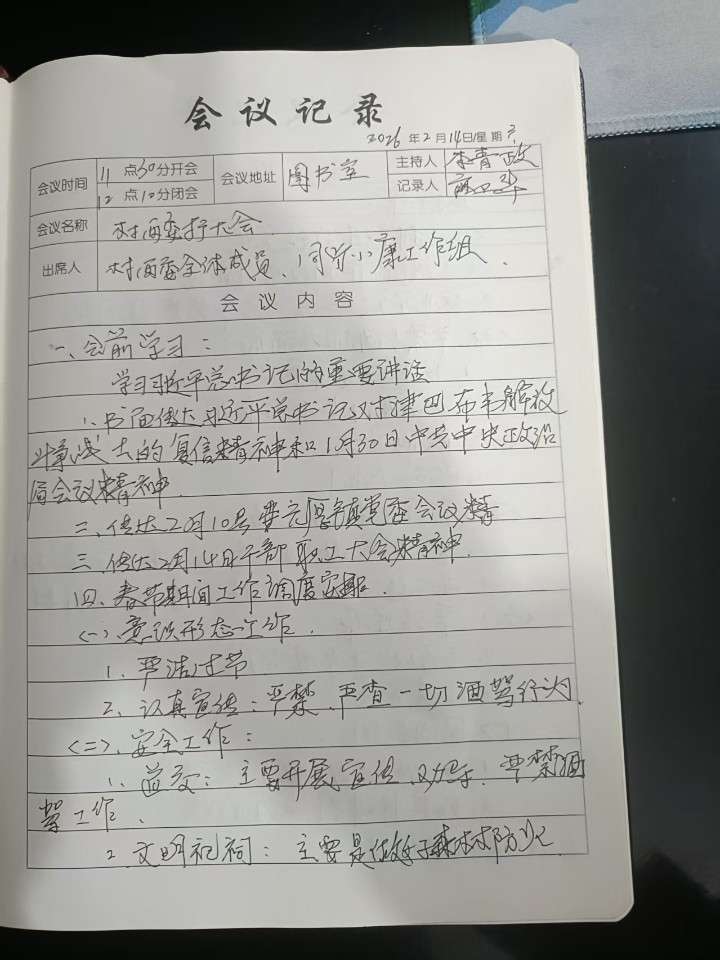 会议记录
2026年2月14日/星期
会议时间 11点30分开会 会议地址 图书室 主持人
12点10分闭会 记录人
会议名称 村两委扩大会
出席人 村两委全体成员、同步小康工作组.
会议内容
一、会前学习:
学习习近平总书记的重要讲话
1、书面传达习近平总书记对津巴布韦解放
士的复信精神和1月30日中共中央政治
局会议精神.
二、传达2月10号 镇党委会议精
三、传达2月14日干部职工大会精神.
四、春节期间工作调度安排.
(一)意识形态工作.
1、严洁过节
2、认真宣传:严禁、严查一切酒驾行为.
(二)、安全工作:
1、道交:主要开展宣传、劝导、严禁酒
驾工作.
2、文明祀祠:主要是做好森林防火